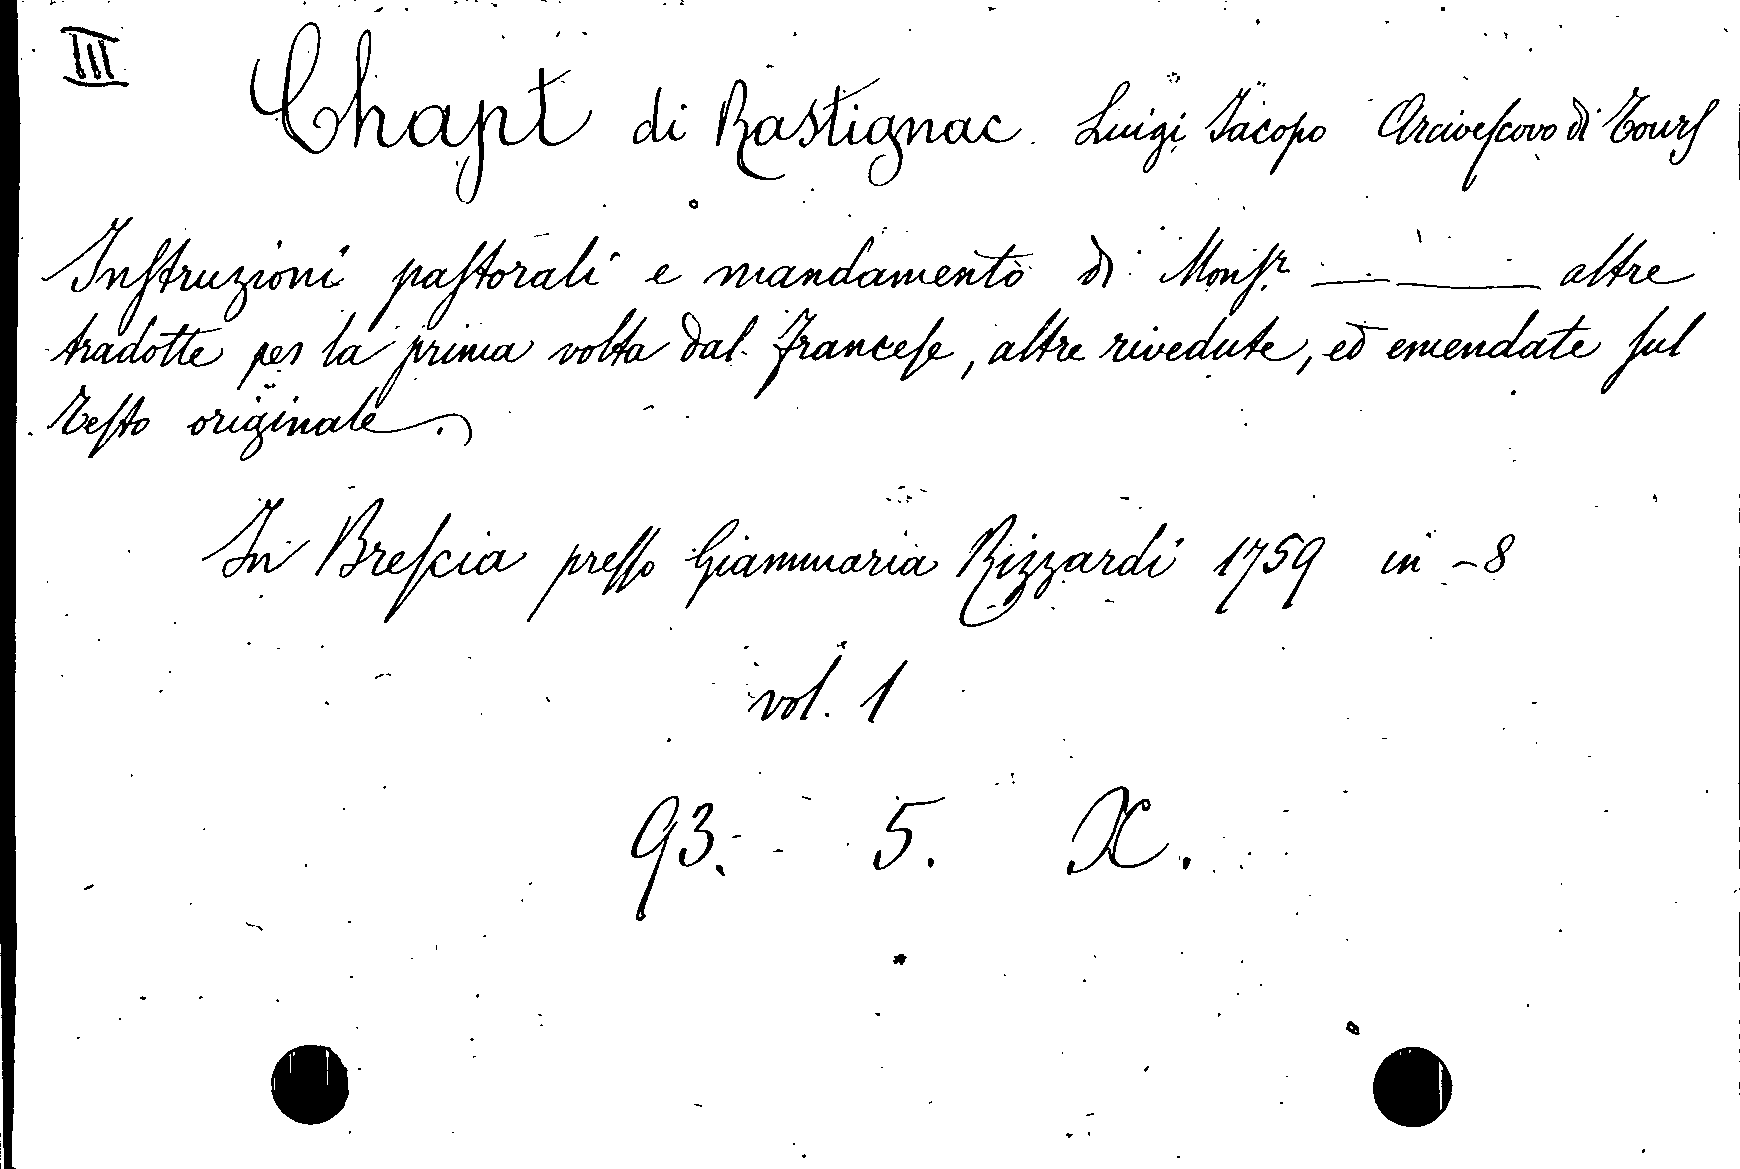 III
Chapt di Rastignac Luigi Jacopo Arcivescovo di Tours
Instruzioni pastorali e mandamento di Monsr. ___ ___ altre
tradotte per la prima volta dal francese, altre rivedute, ed emendate sul
Testo originale.
In Brescia presso Giammaria Rizzardi 1759 in-8
vol. 1
93. 5. X.